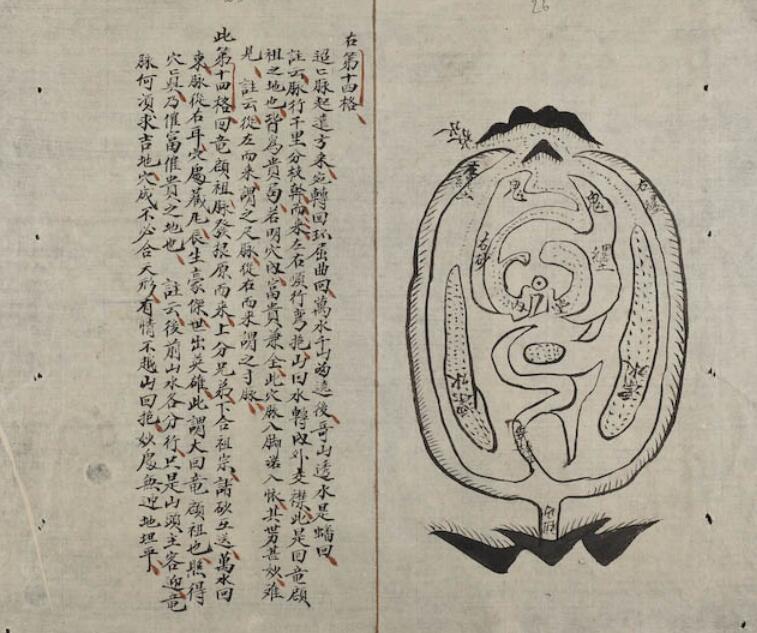 右第十四格
迢亡脉起遠方来宛轉回环屈曲回萬水千山為遠後哥山透水是蟠回
註云脉行千里分枝無而来左右順行弯抱山曰水轉内外交襟此是回竜顧
祖之地也皆為貴局若明穴内富貴兼全此穴脉入脚諾入帳其势甚妙难
見 註云從左而来謂之尺脉從右而来謂之寸脉
此第十四格回竜顧祖脉發根原而来上分兄弟下合祖宗諸砂互送萬水回
東脉從右耳穴處藏凡辰生豪傑世出英雄此謂大回竜顧祖也照得
穴亡真乃催富催貴之地也 註云後前山水各分行只是山頭主客迎竜
脉何須求吉地穴成不必合天形有情不越山回抱妙處無迎地坦平
鬼
鬼
右砂
内
堂
水
水
26